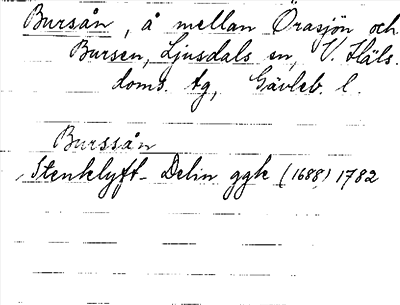 Bursån, å mellan Örasjön och
Bursen, Ljusdals sn, V. Häls.
doms. tg, Gävleb. l.
Burssån
Stenklyft - Delin ggk (1688) 1782